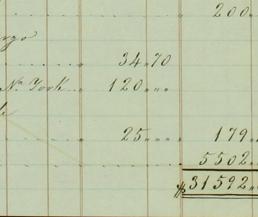 200.
rgo
34.70
N. York 120...
25.... 179.
5502.
$31592.